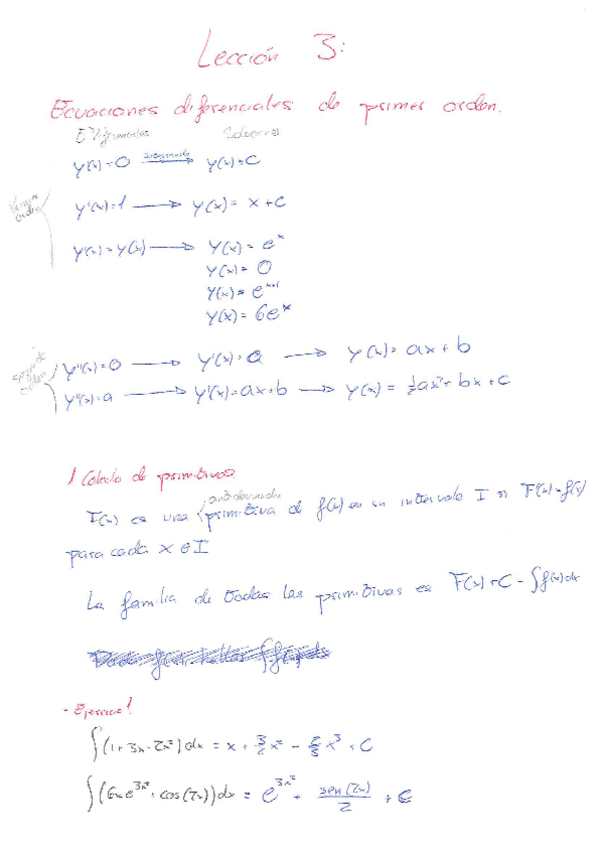 Lección 3:
Ecuaciones diferenciales de primer orden.
E. Diferenciales Soluciones
y'(x)=0 integrando → y(x)=C
Primer orden
y'(x)=1 → y(x)= x+C
y'(x)=y(x) → y(x)= e^x
y(x)= 0
y(x)= e^{x+1}
y(x)= 6e^x
Segundo orden
y''(x)=0 → y'(x)=a → y(x)= ax+b
y''(x)=a → y'(x)=ax+b → y(x)= ½ax²+bx+C
1 Cálculo de primitivas
antiderivada
F(x) es una primitiva de f(x) en un intervalo I si F'(x)=f(x)
para cada x ∈ I
La familia de todas las primitivas es F(x)+C = ∫f(x)dx
- Ejercicio 1
∫(1+3x-2x²)dx = x + 3/2 x² - 2/3 x³ + C
∫(6xe^{3x²}+cos(2x))dx = e^{3x²} + sen(2x)/2 + C